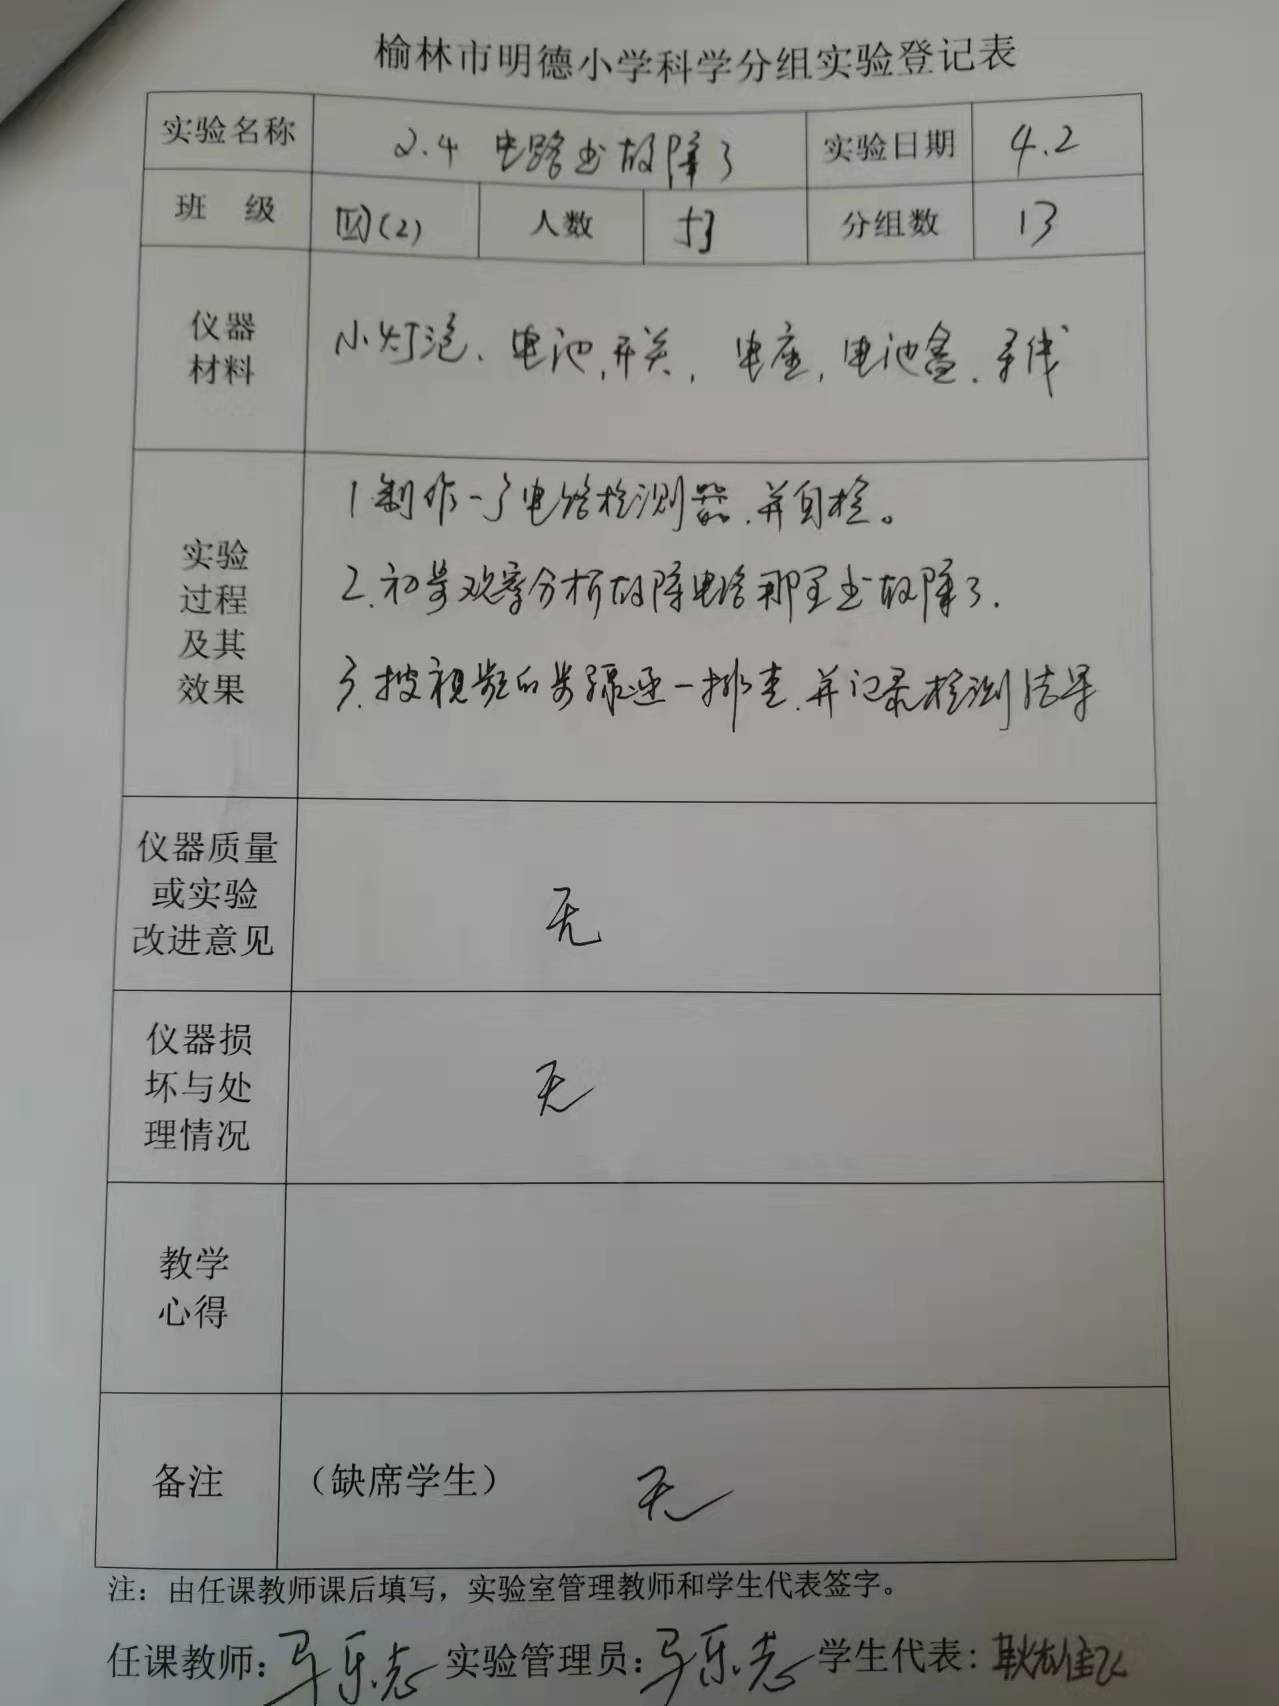 榆林市明德小学科学分组实验登记表
实验名称 2.4 电路出故障了 实验日期 4.2
班 级 四(2) 人数 53 分组数 13
仪器
材料
小灯泡、电池,开关,电座,电池盒.导线
实验
过程
及其
效果
1 制作一个电路检测器.并自检。
2.初步观察分析故障电路那里出故障了.
3.按视频的步骤逐一排查.并记录检测结果
仪器质量
或实验
改进意见
无
仪器损
坏与处
理情况
无
教学
心得
备注 (缺席学生) 无
注:由任课教师课后填写,实验室管理教师和学生代表签字。
任课教师:马乐志 实验管理员:马乐志 学生代表: